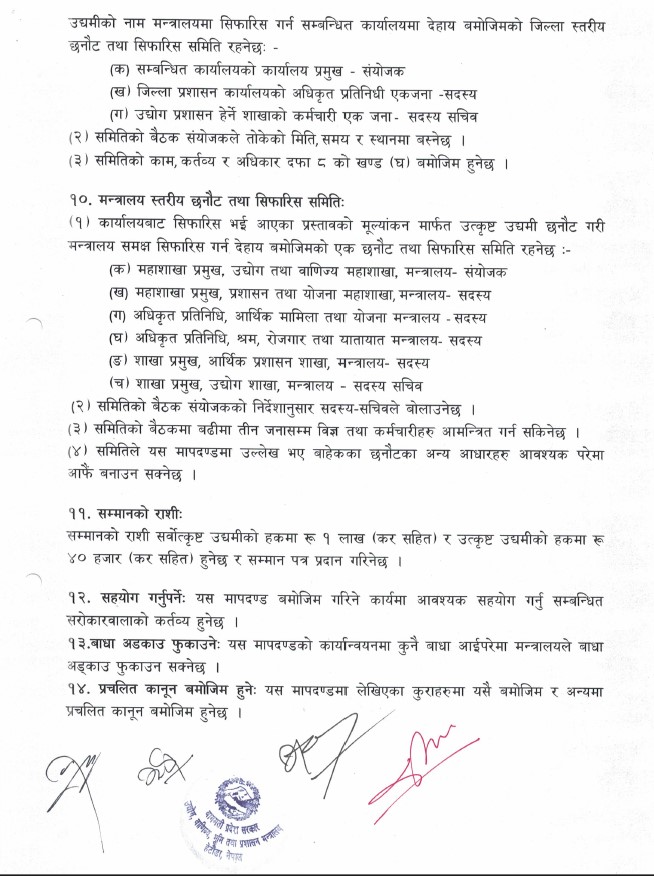 उद्यमीको नाम मन्त्रालयमा सिफारिस गर्न सम्बन्धित कार्यालयमा देहाय बमोजिमको जिल्ला स्तरीय
छनौट तथा सिफारिस समिति रहनेछः -
(क) सम्बन्धित कार्यालयको कार्यालय प्रमुख - संयोजक
(ख) जिल्ला प्रशासन कार्यालयको अधिकृत प्रतिनिधी एकजना -सदस्य
(ग) उद्योग प्रशासन हेर्ने शाखाको कर्मचारी एक जना- सदस्य सचिव
(२) समितिको बैठक संयोजकले तोकेको मिति, समय र स्थानमा बस्नेछ ।
(३) समितिको काम, कर्तव्य र अधिकार दफा ८ को खण्ड (घ) बमोजिम हुनेछ ।
१०. मन्त्रालय स्तरीय छनौट तथा सिफारिस समितिः
(१) कार्यालयबाट सिफारिस भई आएका प्रस्तावको मूल्यांकन मार्फत उत्कृष्ट उद्यमी छनौट गरी
मन्त्रालय समक्ष सिफारिस गर्न देहाय बमोजिमको एक छनौट तथा सिफारिस समिति रहनेछ :-
(क) महाशाखा प्रमुख, उद्योग तथा वाणिज्य महाशाखा, मन्त्रालय- संयोजक
(ख) महाशाखा प्रमुख, प्रशासन तथा योजना महाशाखा, मन्त्रालय- सदस्य
(ग) अधिकृत प्रतिनिधि, आर्थिक मामिला तथा योजना मन्त्रालय -सदस्य
(घ) अधिकृत प्रतिनिधि, श्रम, रोजगार तथा यातायात मन्त्रालय- सदस्य
(ङ) शाखा प्रमुख, आर्थिक प्रशासन शाखा, मन्त्रालय- सदस्य
(च) शाखा प्रमुख, उद्योग शाखा, मन्त्रालय – सदस्य सचिव
(२) समितिको बैठक संयोजकको निर्देशानुसार सदस्य-सचिवले बोलाउनेछ ।
(३) समितिको बैठकमा बढीमा तीन जनासम्म विज्ञ तथा कर्मचारीहरु आमन्त्रित गर्न सकिनेछ ।
(४) समितिले यस मापदण्डमा उल्लेख भए बाहेकका छनौटका अन्य आधारहरु आवश्यक परेमा
आफैं बनाउन सक्नेछ ।
११. सम्मानको राशीः
सम्मानको राशी सर्वोत्कृष्ट उद्यमीको हकमा रू १ लाख (कर सहित) र उत्कृष्ट उद्यमीको हकमा रू
४० हजार (कर सहित) हुनेछ र सम्मान पत्र प्रदान गरिनेछ ।
१२. सहयोग गर्नुपर्नेः यस मापदण्ड बमोजिम गरिने कार्यमा आवश्यक सहयोग गर्नु सम्बन्धित
सरोकारवालाको कर्तव्य हुनेछ ।
१३.बाधा अडकाउ फुकाउनेः यस मापदण्डको कार्यान्वयनमा कुनै बाधा आईपरेमा मन्त्रालयले बाधा
अड्काउ फुकाउन सक्नेछ ।
१४. प्रचलित कानून बमोजिम हुनेः यस मापदण्डमा लेखिएका कुराहरुमा यसै बमोजिम र अन्यमा
प्रचलित कानून बमोजिम हुनेछ ।
बागमती प्रदेश सरकार
उद्योग, वाणिज्य, भूमि तथा प्रशासन मन्त्रालय
हेटौंडा, नेपाल